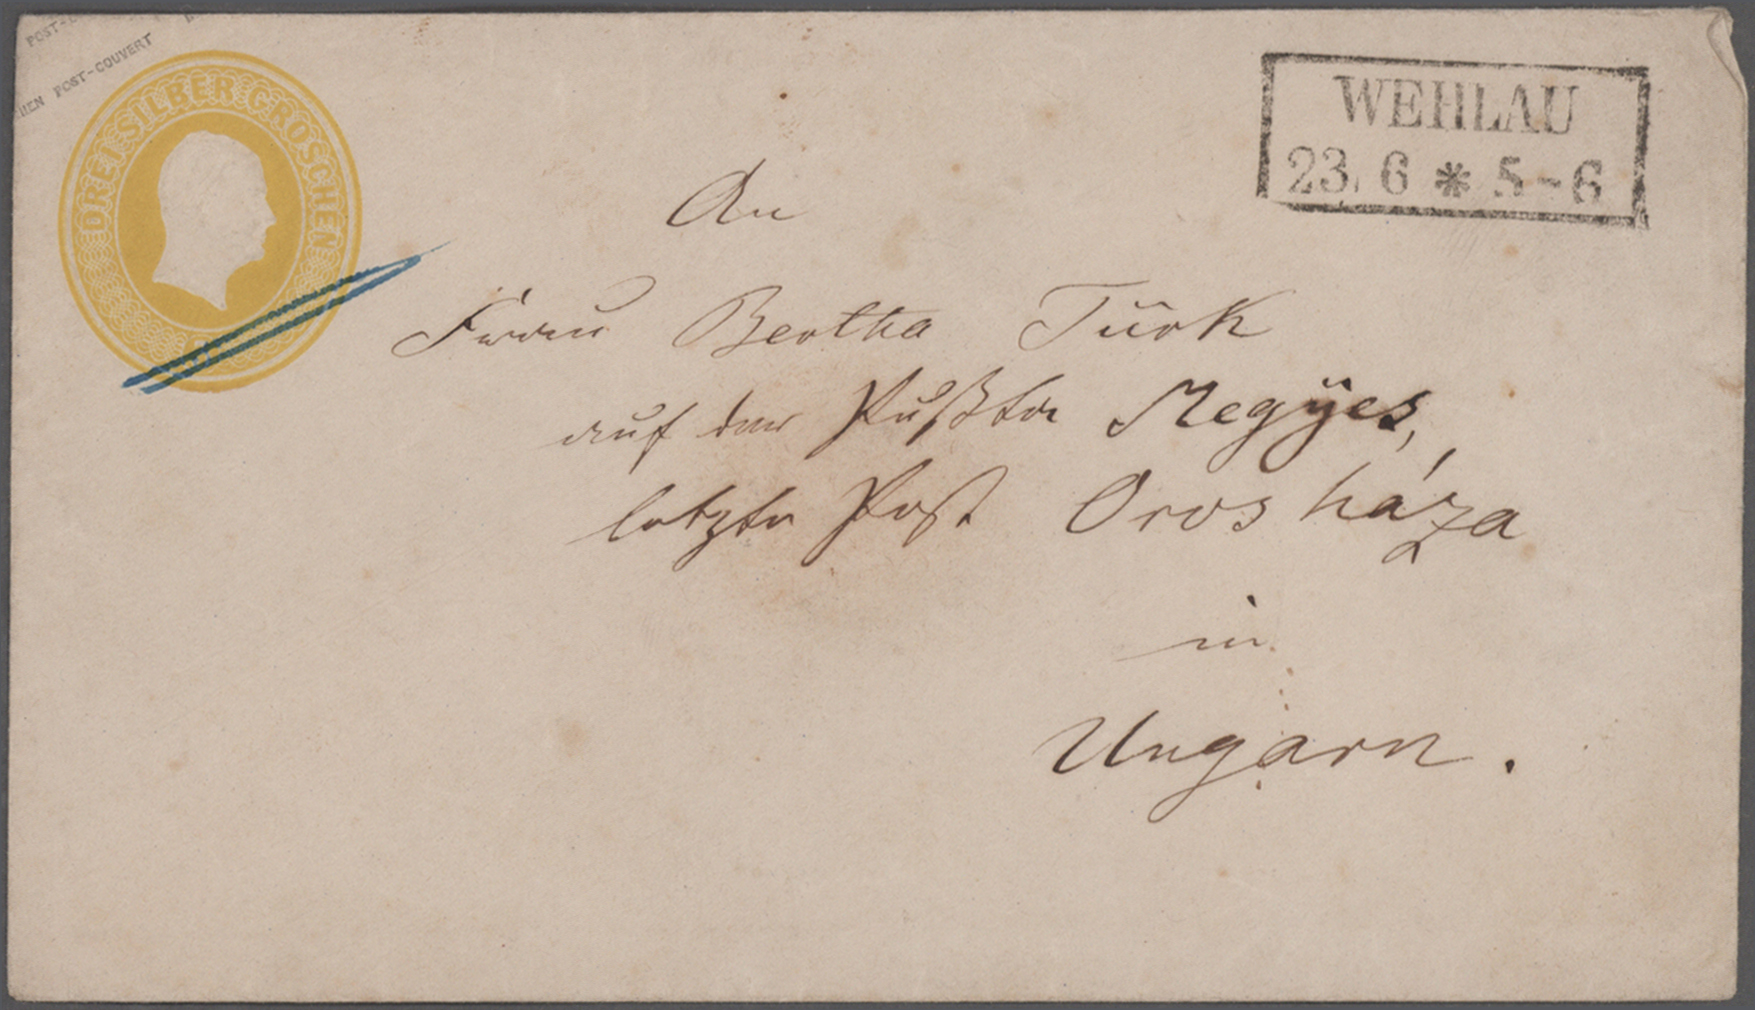 POST-
HEN POST-COUVERT
DREI SILBER GROSCHEN
WEHLAU
23. 6 * 5-6
An
Frau Bertha Türk
auf der Pußta Megÿes,
letzte Post Orosháza
in
Ungarn.